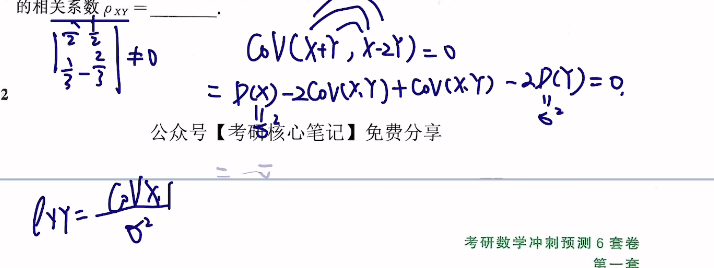 的相关系数 ρ_XY = ________.
| 1/2 1/2 |
| 1/3 -2/3 | ≠0
Cov(X+Y, X-2Y)=0
2
= D(X)-2Cov(X,Y)+Cov(X,Y) -2D(Y)=0.
σ² σ²
公众号【考研核心笔记】免费分享
=
ρXY = Cov(X,Y) / σ²
考研数学冲刺预测 6 套卷
第一套